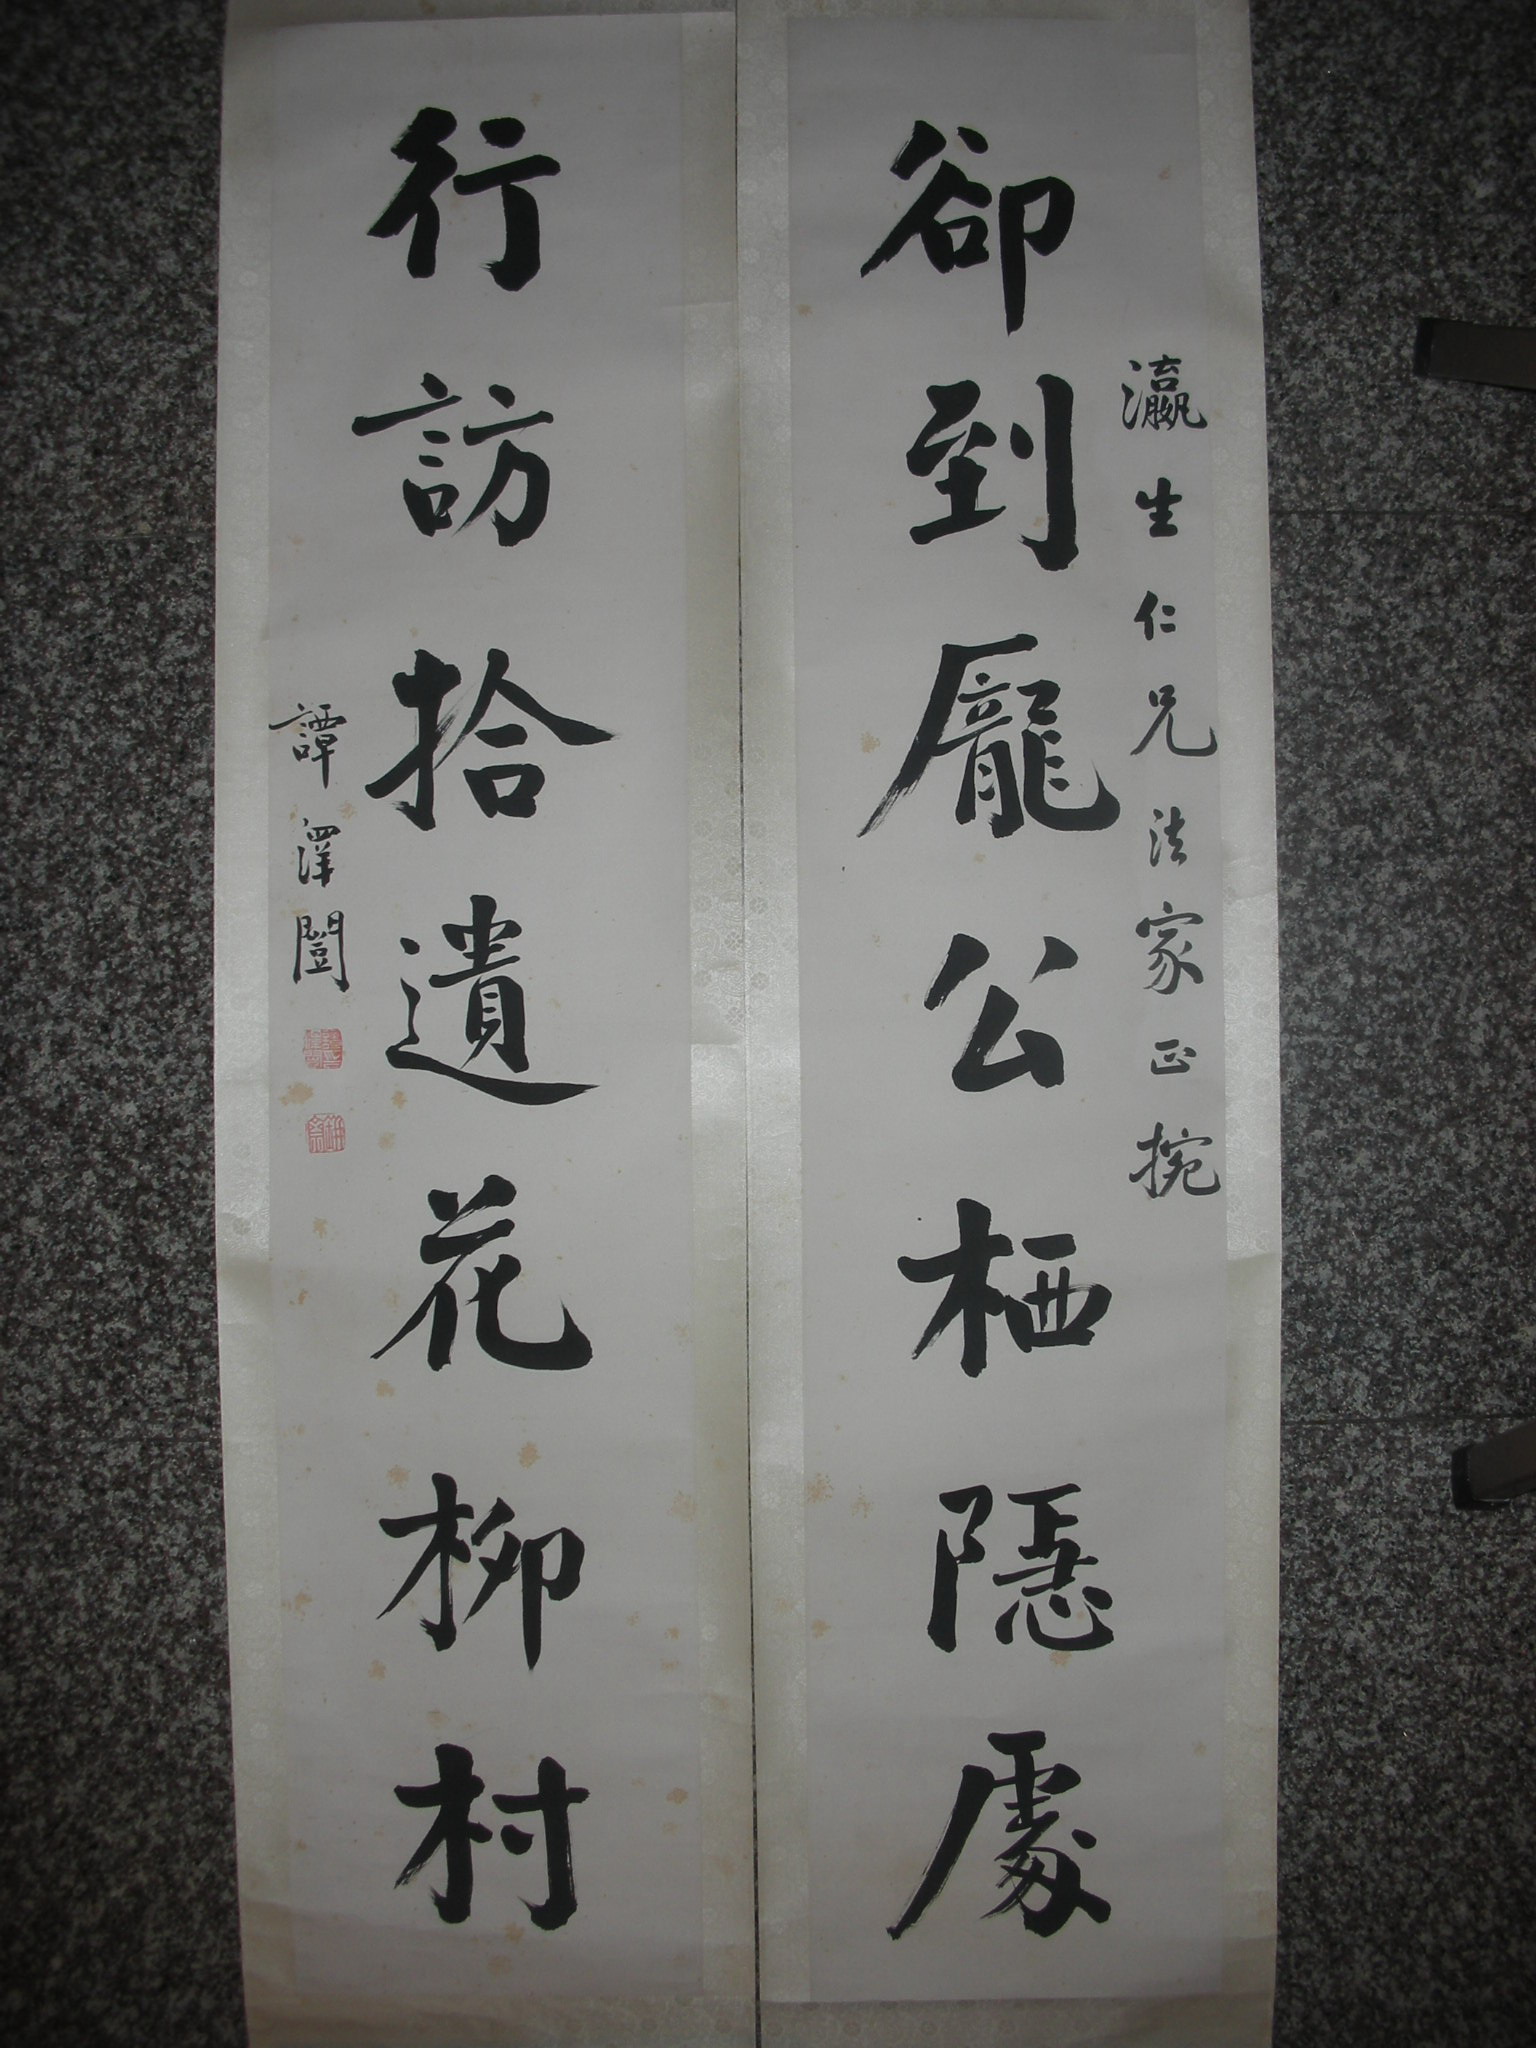 瀛生仁兄法家正捥
卻到龐公栖隱處
行訪拾遺花柳村
譚澤闓